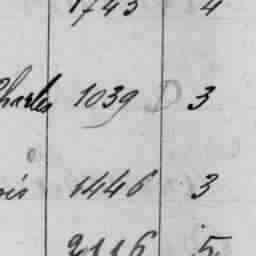 1743 4
Charles 1039 D 3
1446 3
2116 5